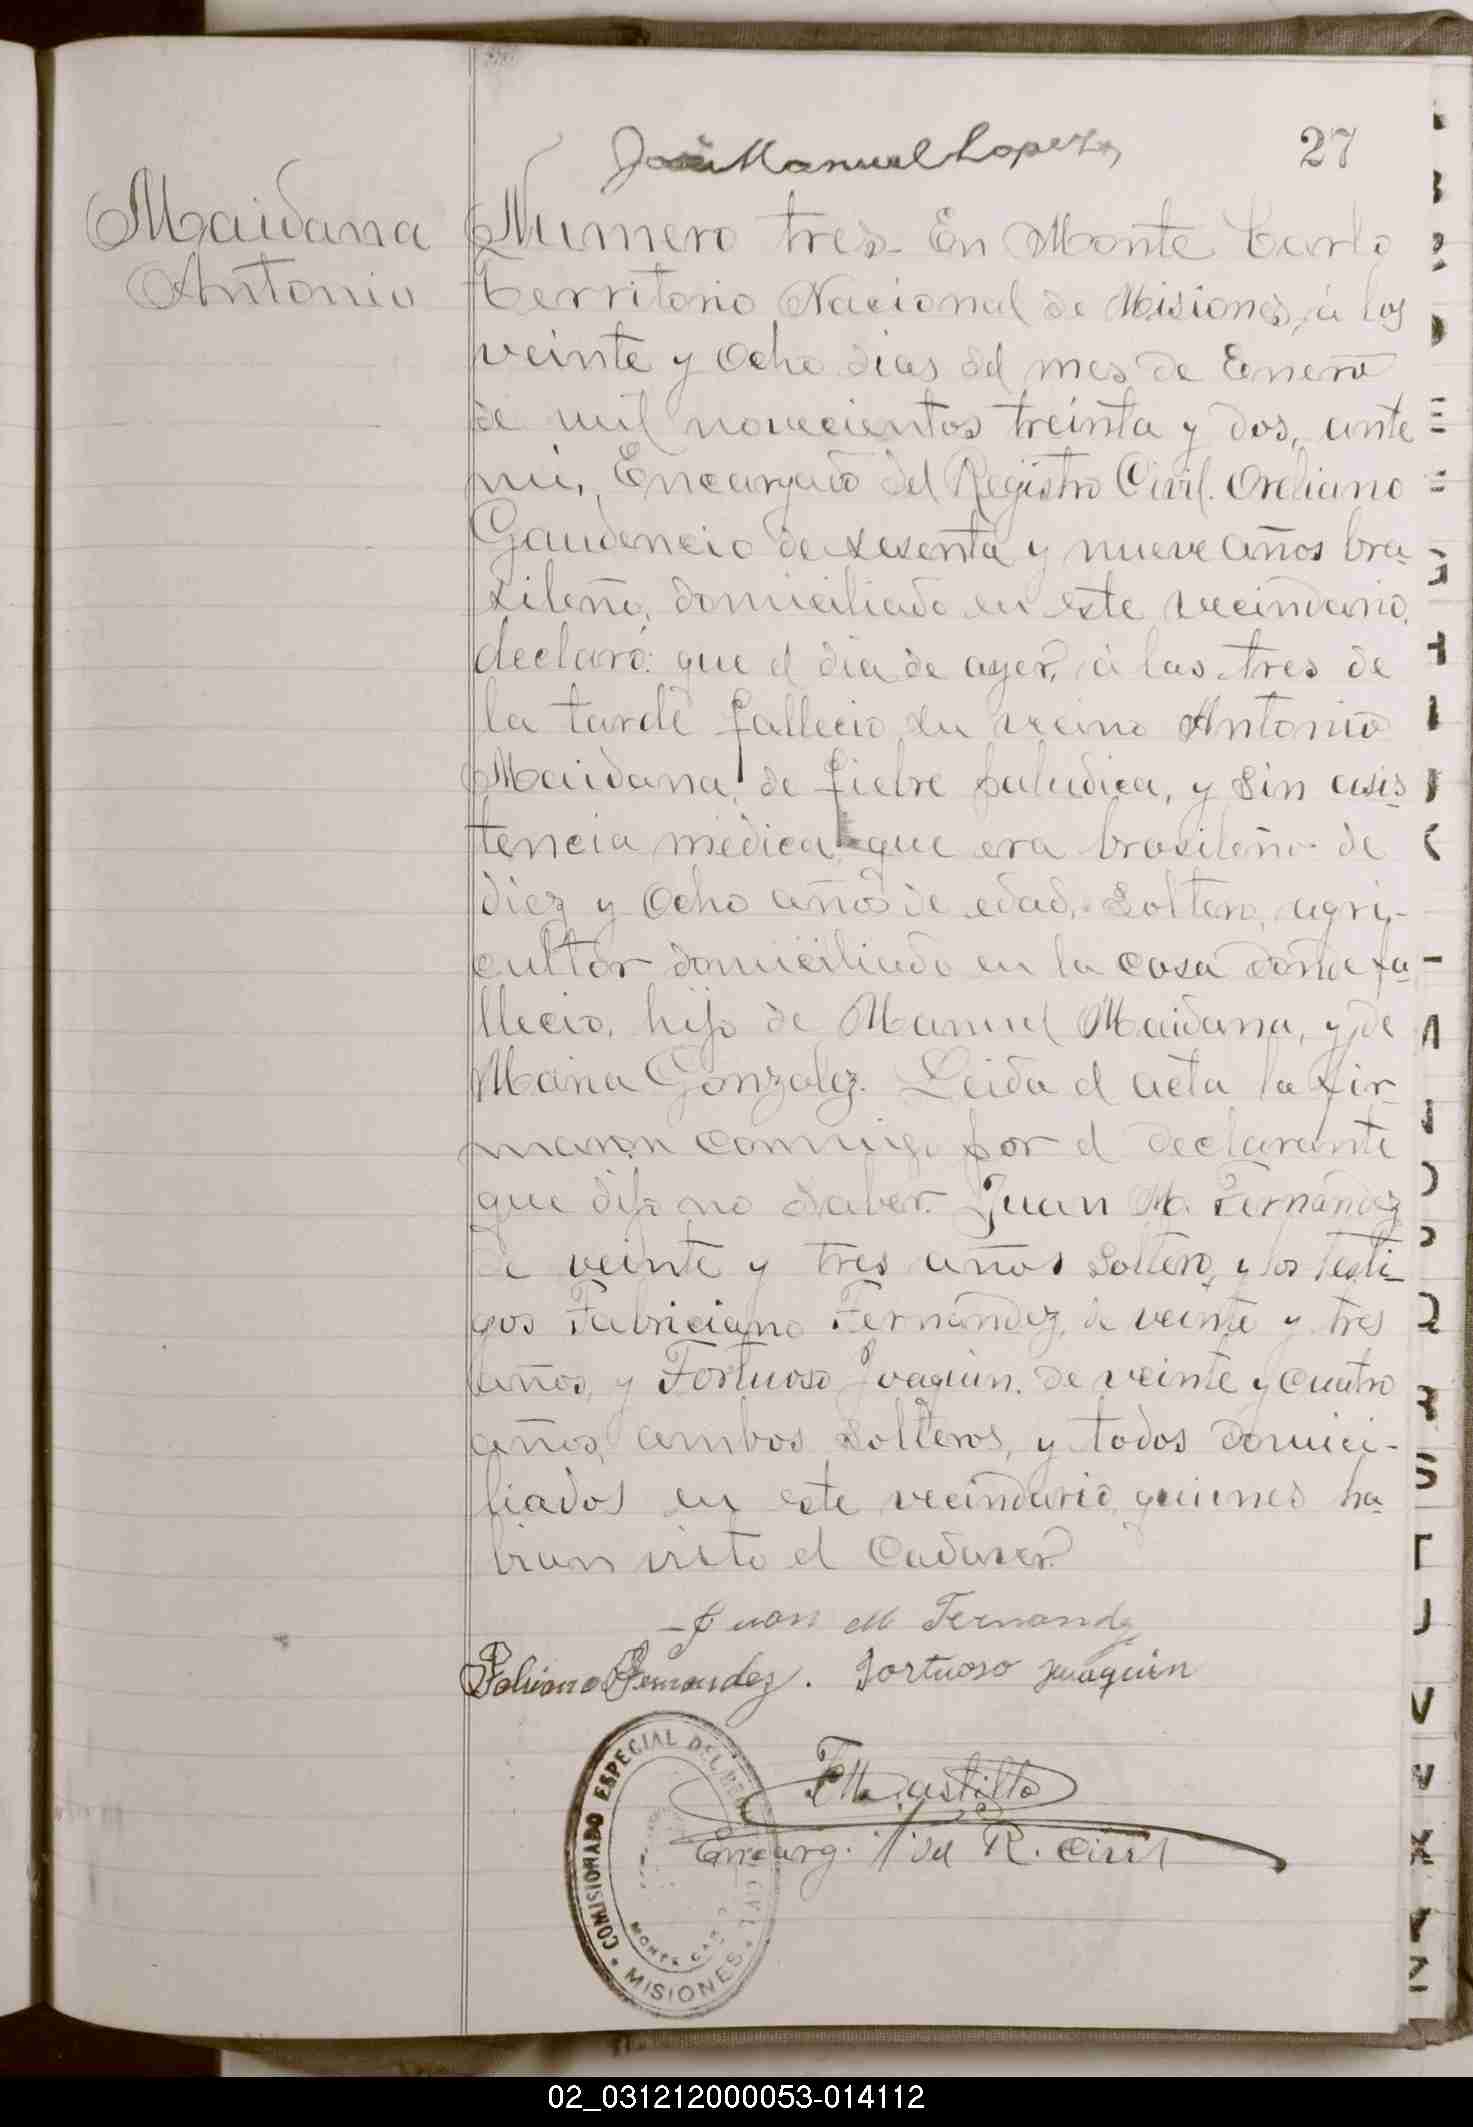 José Manuel Lopez
27
Maidana
Antonio
Numero tres. En Monte Carlo
territorio Nacional de Misiones, á los
veinte y ocho dias del mes de Enero
de mil novecientos treinta y dos, ante
mi, Encargado del Registro Civil. Oreliano
Gaudencio de sesenta y nueve años bra-
sileño, domiciliado en este vecindario,
declaró: que el dia de ayer, á las tres de
la tarde fallecio su vecino Antonio
Maidana, de fiebre paludica, y sin asis-
tencia médica, que era brasileño de
diez y ocho años de edad, soltero, agri-
cultor domiciliado en la casa donde fa-
llecio, hijo de Manuel Maidana, y de
Maria Gonzalez. Leida el acta la fir-
maron conmigo por el declarante
que dijo no saber. Juan M. Fernández
de veinte y tres años soltero, y los testi-
gos Fabriciano Fernández, de veinte y tres
años, y Fortuoso Joaquin, de veinte y cuatro
años, ambos solteros, y todos domici-
liados en este vecindario, quienes ha-
bian visto el cadaver.
Juan M Fernandz
Fernandez. Fortuoso Juaquin
F M Castillo
Encarg. del R. Civil
COMISIONADO ESPECIAL DEL REG. CIVIL
MONTE CARLO
MISIONES
02_031212000053-014112